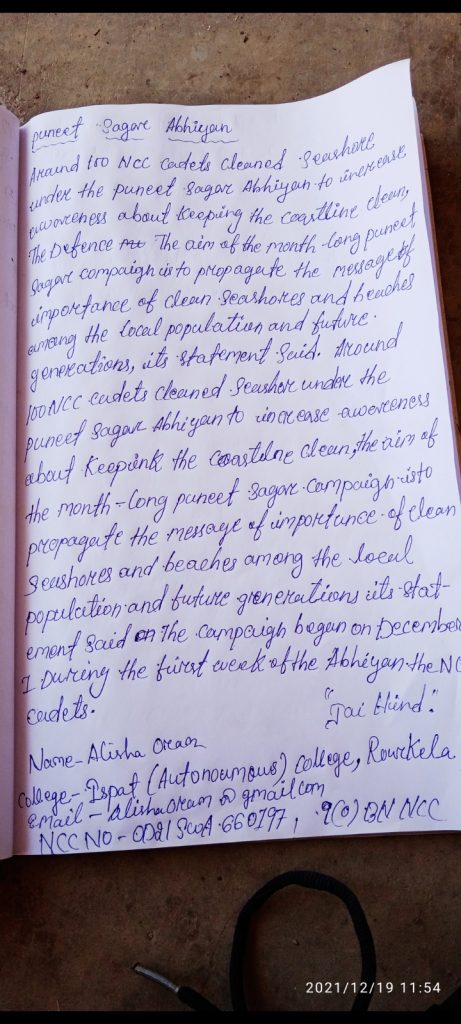 Puneet Sagar Abhiyan
Around 100 NCC Cadets Cleaned Seashore
under the puneet Sagar Abhiyan to increase
awareness about Keeping the coastline clean,
The Defence The aim of the month-long puneet
Sagar compaign is to propagate the message of
importance of clean seashores and beaches
among the local population and future
generations, its statement said. Around
100 NCC cadets cleaned seashor under the
puneet Sagar Abhiyan to increase awereness
about Keepink the coastilne clean, the aim of
the month-long puneet sagar campaign is to
propagate the message of importance of clean
seashores and beaches among the local
population and future grenerations its stat-
ement said on The campaigh began on December
1 During the first week of the Abhiyan the NC
cadets.
"Jai Hind".
Name - Alisha Oram
College - Ispat (Autonoumous) College, Rourkela
Email - alishaoram@gmailcom
NCC NO - OD21SWA660197, 9(O) BN NCC
2021/12/19 11:54